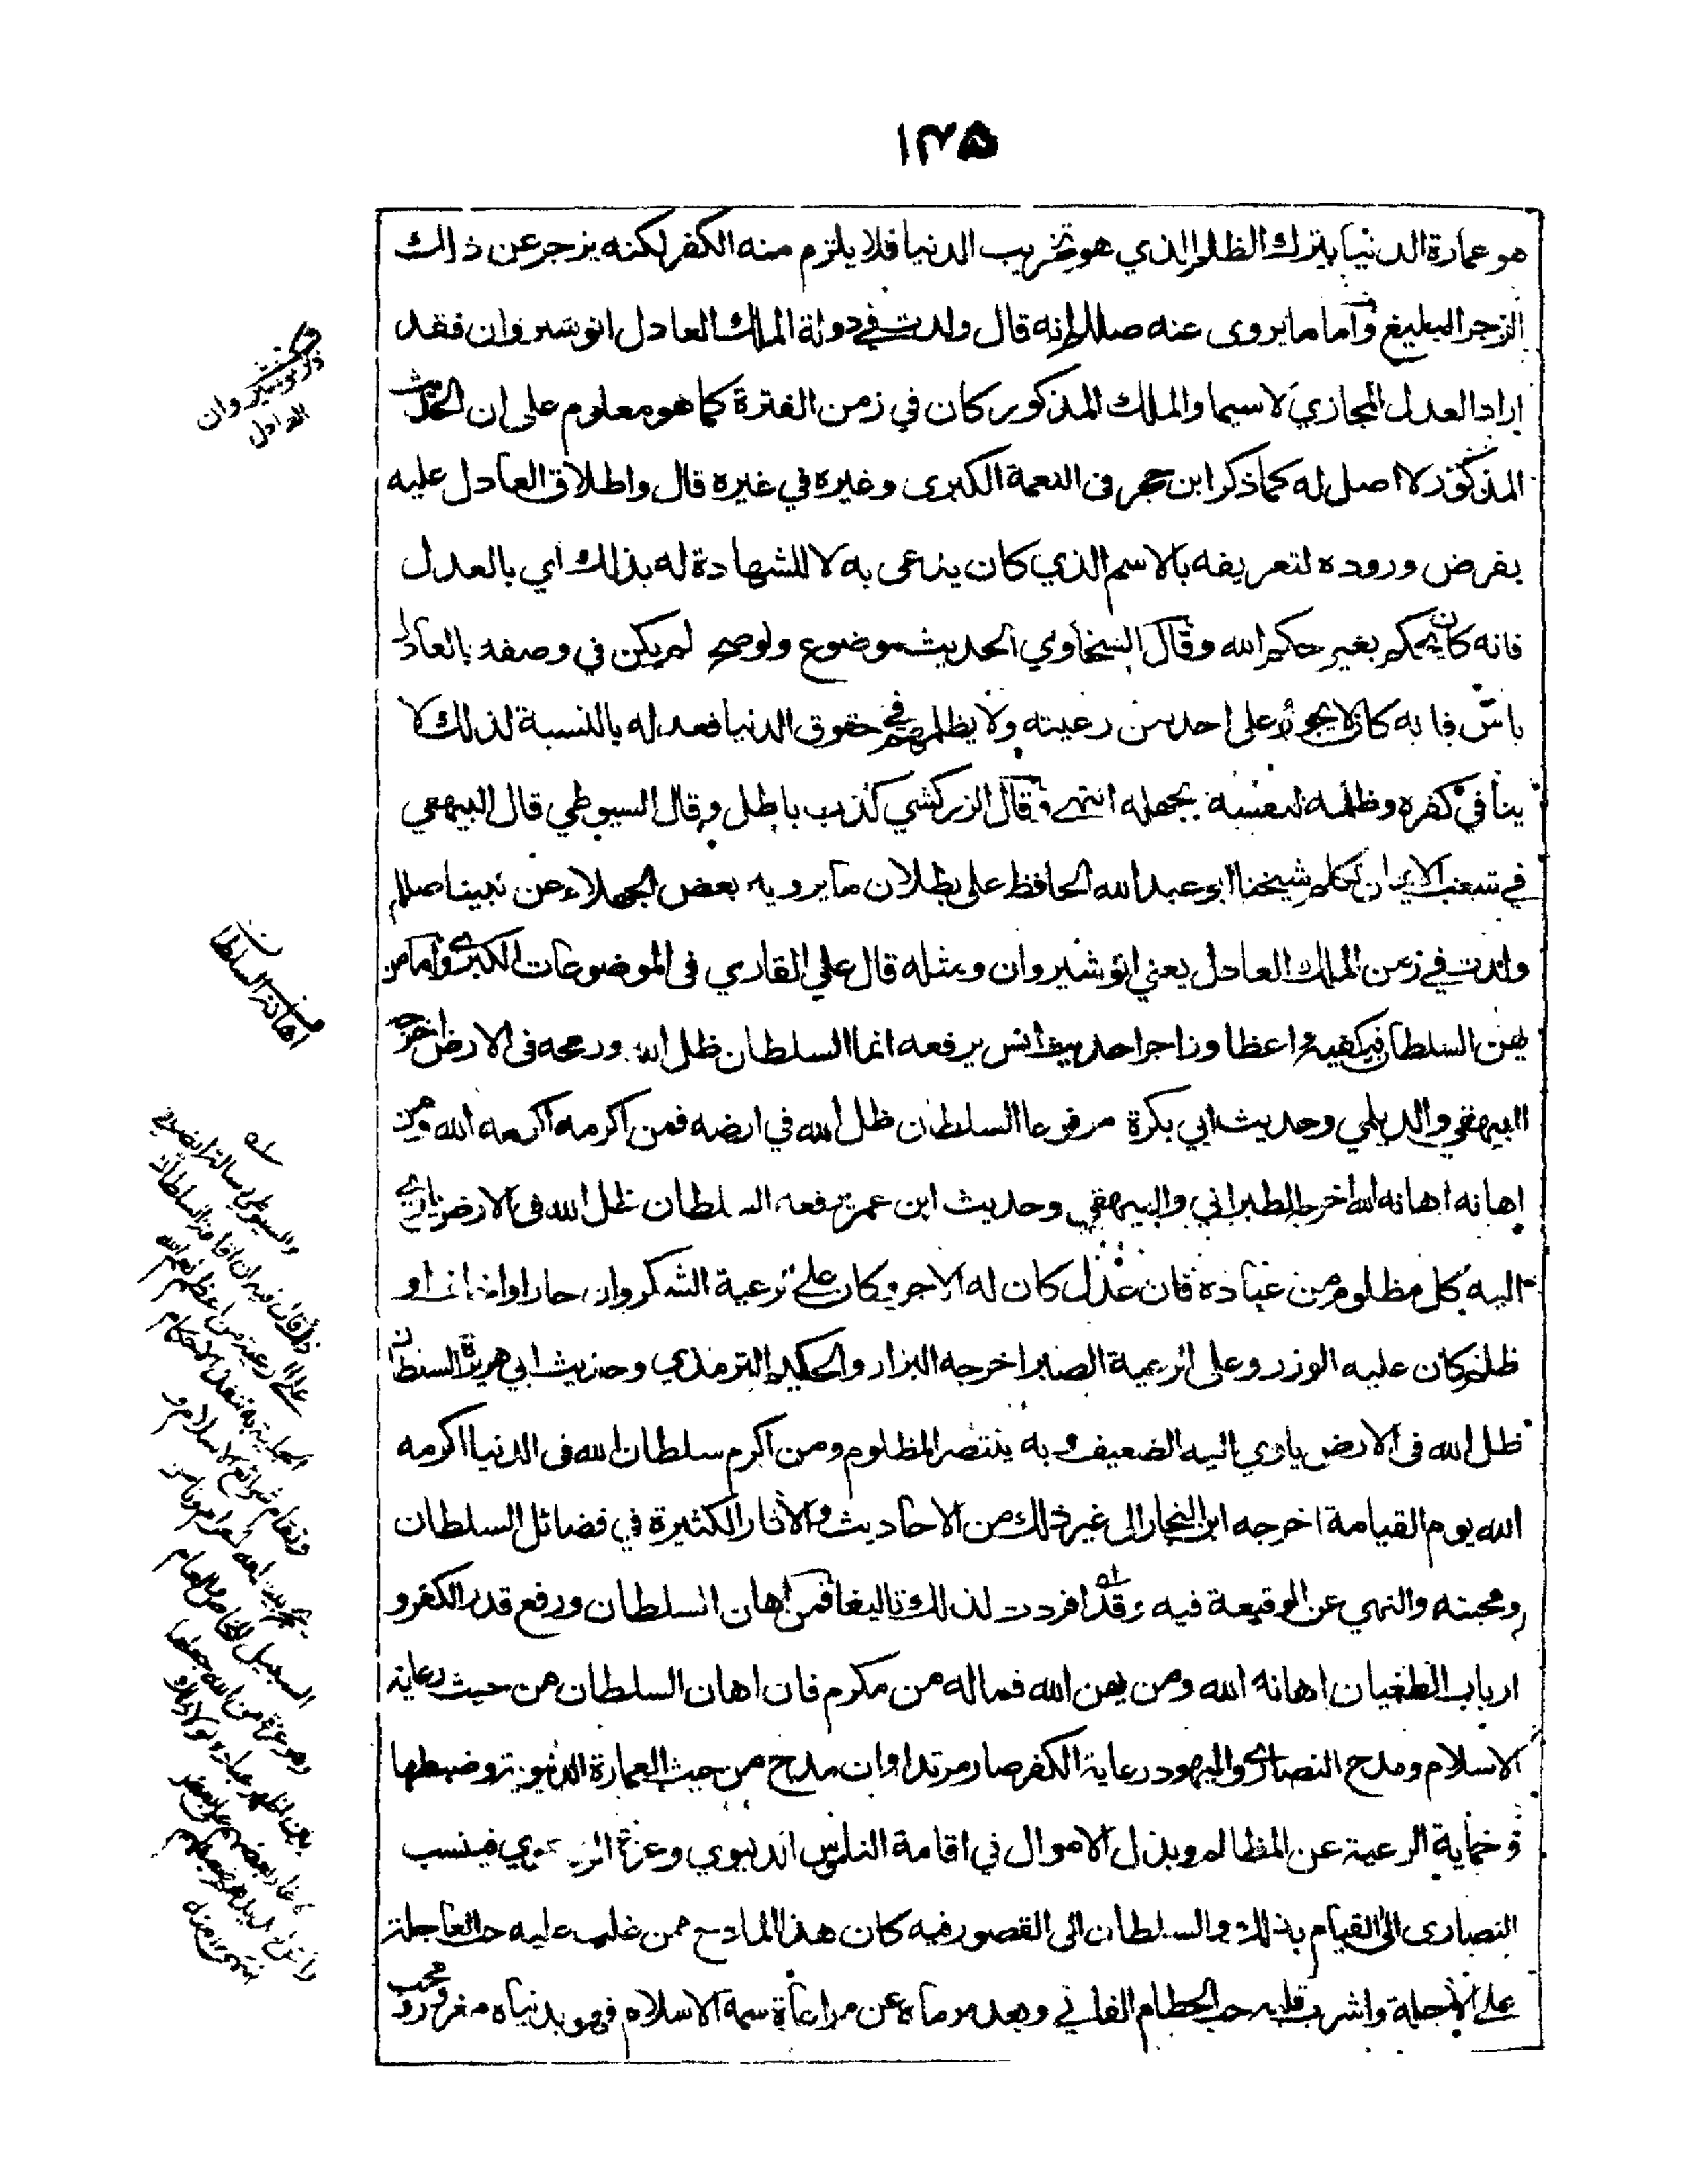 ١٣٥
هو عمارة الدنيا بترك الظلم الذي هو تخريب الدنيا فلا يلزم منه الكفر لكنه يزجر عن ذالك
الزجر البليغ واما ما يروى عنه صللم انه قال ولدت في دولة الملك العادل انوشيروان فقد
اراد العدل المجازي لا سيما والملك المذكور كان في زمن الفترة كما هو معلوم على ان الحديث
المذكور لا اصل له كما ذكر ابن حجر فى النعمة الكبرى وغيره في غيره قال واطلاق العادل عليه
بفرض وروده لتعريفه بالاسم الذي كان يدعى به لا للشهادة له بذلك اي بالعدل
فانه كان يحكم بغير حكم الله وقال السخاوي الحديث موضوع ولو صح لم يكن في وصفه بالعادل
باس فانه كان لا يجور على احد من رعيته ولا يظلمهم في حقوق الدنيا فعدله بالنسبة لذلك لا
ينافي كفره وظلمه لنفسه بجهله انتهى وقال الزركشي كذب باطل وقال السيوطي قال البيهقي
في شعب الايمان تكلم شيخنا ابو عبد الله الحافظ على بطلان ما يرويه بعض الجهلاء عن نبينا صللم
ولدت في زمن الملك العادل يعني انوشيروان ومثله قال علي القاري فى الموضوعات الكبرى واما من
يهن السلطان فيكفيه واعظا وزاجرا حديث انس يرفعه انما السلطان ظل الله ورمحه فى الارض اخرجه
البيهقي والديلمي وحديث ابي بكرة مرفوعا السلطان ظل الله في ارضه فمن اكرمه اكرمه الله ومن
اهانه اهانه الله اخرجه الطبراني والبيهقي وحديث ابن عمر يرفعه السلطان ظل الله فى الارض ياوي
اليه كل مظلوم من عباده فان عدل كان له الاجر وكان على الرعية الشكر وان جار او خان او
ظلم كان عليه الوزر وعلى الرعية الصبر اخرجه البزار والحكيم الترمذي وحديث ابي هريرة السلطان
ظل الله فى الارض ياوي اليه الضعيف وبه ينتصر المظلوم ومن اكرم سلطان الله فى الدنيا اكرمه
الله يوم القيامة اخرجه ابن النجار الى غير ذلك من الاحاديث والآثار الكثيرة في فضائل السلطان
ومحبته والنهي عن الوقيعة فيه وقد افردت لذلك تاليفا فمن اهان السلطان ورفع قدر الكفر و
ارباب الطغيان اهانه الله ومن يهن الله فما له من مكرم فان اهان السلطان من حيث رعاية
الاسلام ومدح النصارى واليهود رعاية الكفر صار مرتدا وان مدح من حيث العمارة الدنيوية وضبطها
وحماية الرعية عن المظالم وبذل الاموال في اقامة الناموس الدنيوي وعزة فينسب
النصارى الى القيام بذلك والسلطان الى القصور فيه كان هذا المادح ممن غلب عليه حب العاجلة
على الآجلة واشرب قلبه حب الحطام الفاني وبعد مرماه عن مراعاة سمة الاسلام فهو بدنياه مغرور ومحب
ذكر نوشيروان
العادل
اهانة السلطان